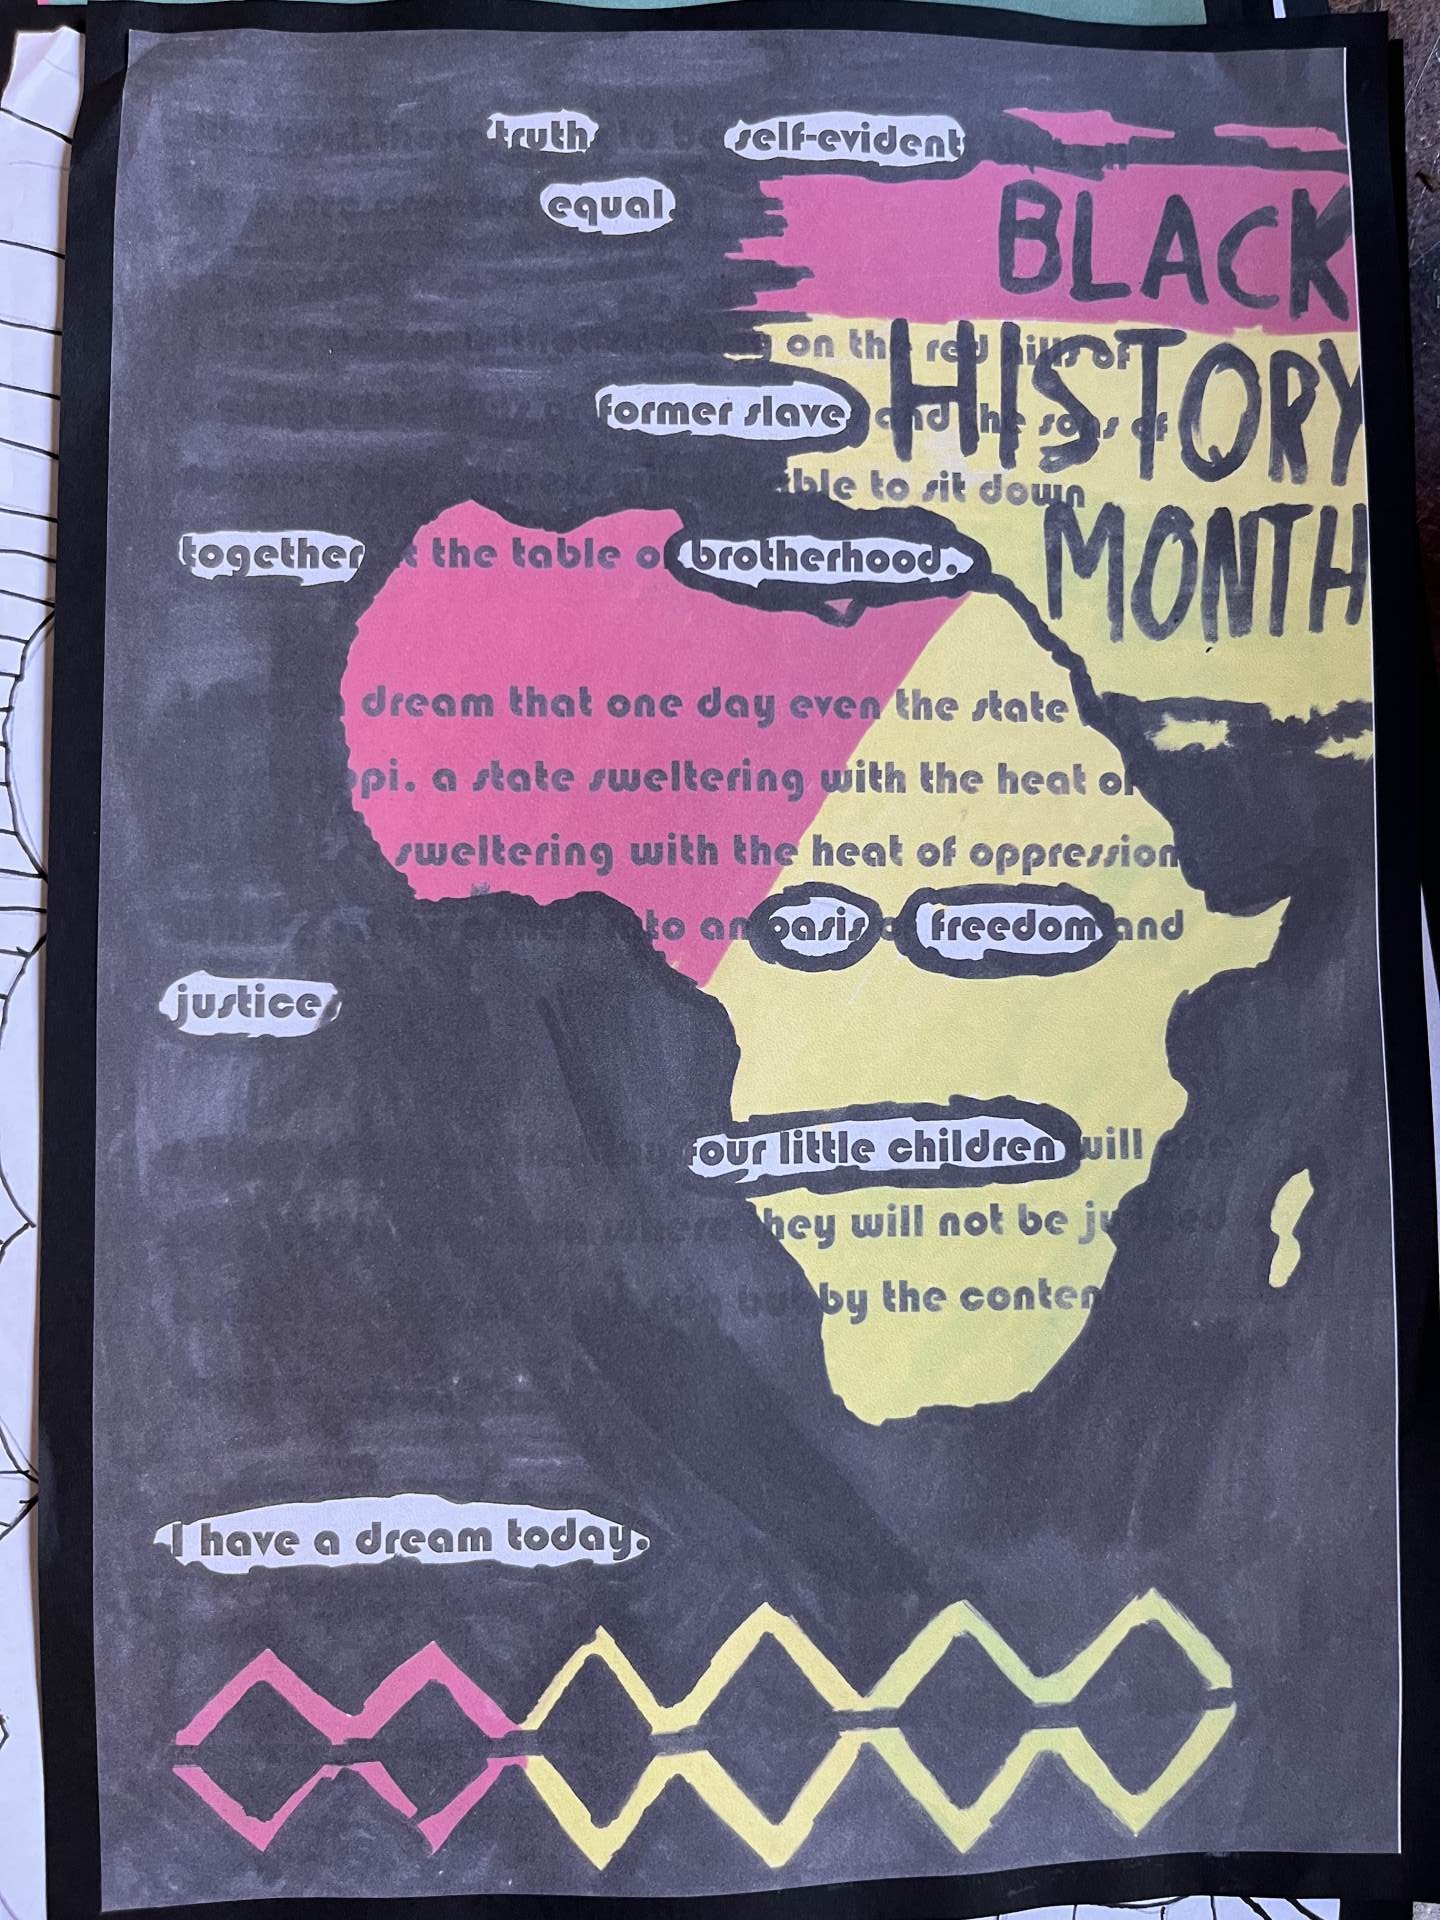 truth to be self-evident
equal.
BLACK
on the red hills of
HISTORY
former slave and the sons of
able to sit down
MONTH
together the table of brotherhood.
dream that one day even the state
pi. a state sweltering with the heat of
sweltering with the heat of oppression
to an oasis freedom and
justice
four little children will
where they will not be judged
but by the content
I have a dream today.